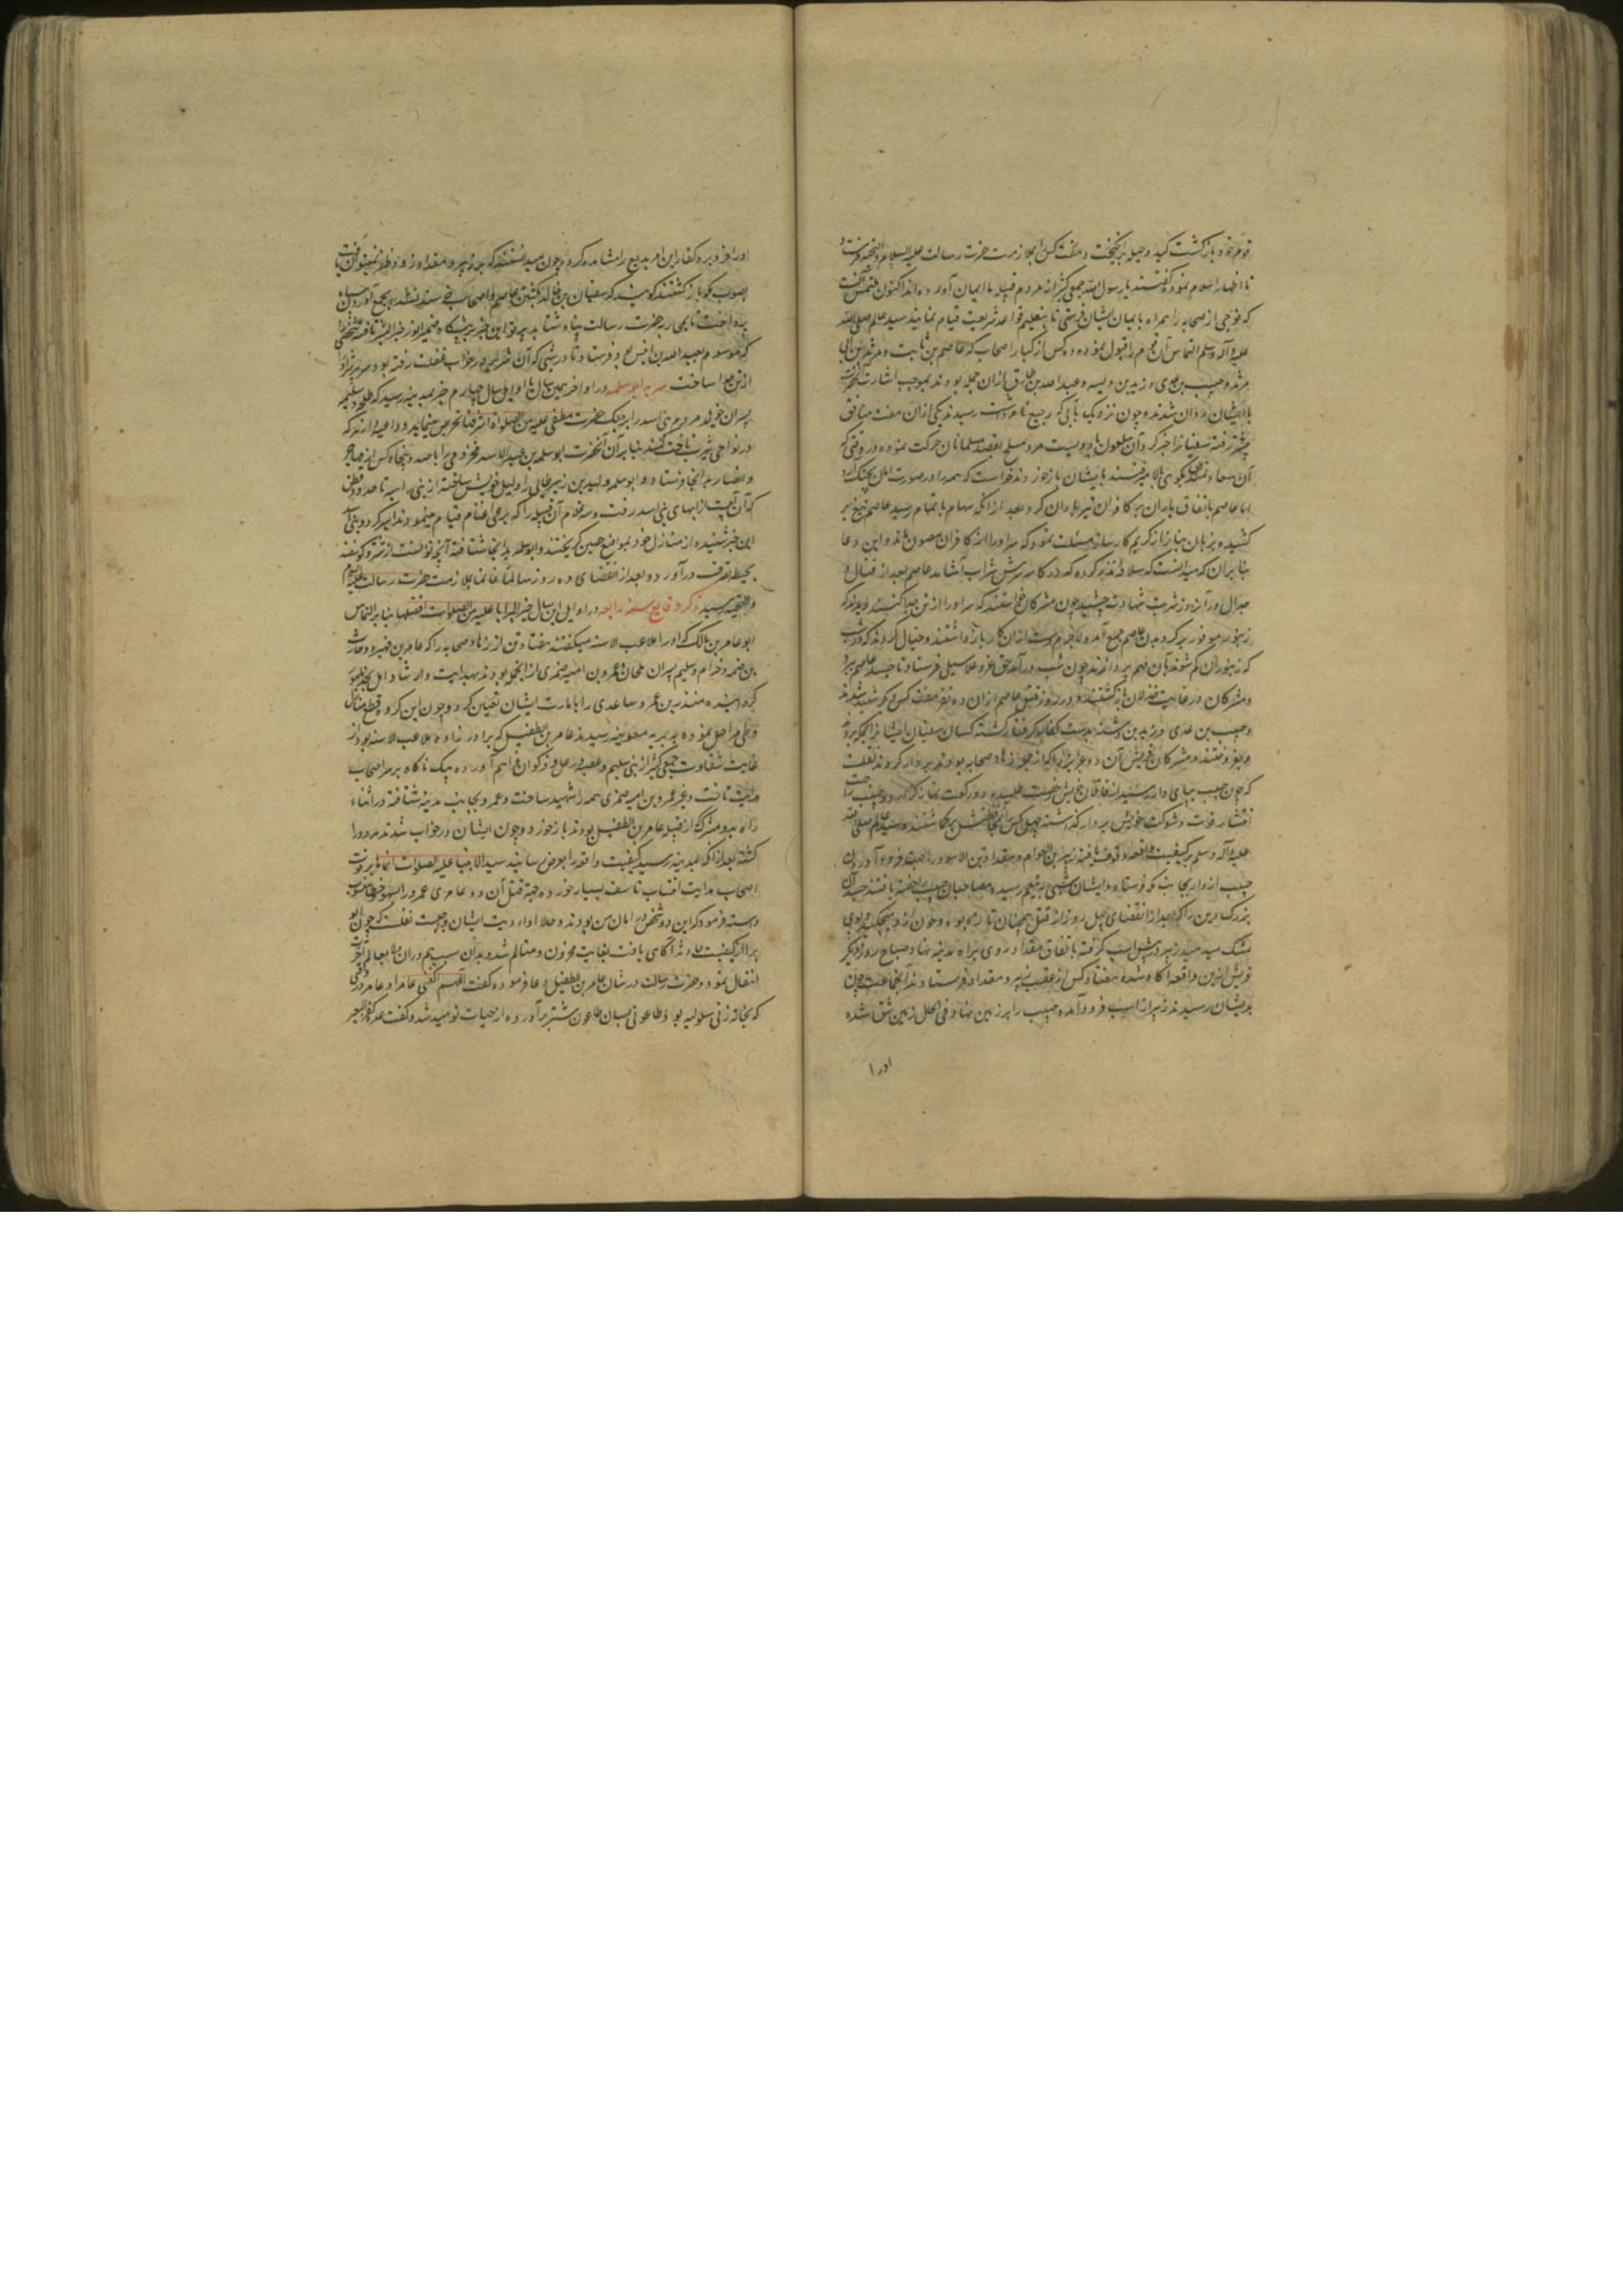 قوم خود بازگشت کید و حیله برانگیخت و هفت کس را بملازمت حضرت رسالت علیه السلام والتحیه فرستاد
تا اظهار اسلام نموده گفتند یا رسول الله جمعی کثیر از مردم قبیله ما ایمان آورده‌اند اکنون ملتمس آنست
که فوجی از صحابه را همراه ما بمیان ایشان فرستی تا بتعلیم قواعد شریعت قیام نمایند سید عالم صلی الله
علیه وآله وسلم التماس آن قوم را قبول نموده ده کس از کبار اصحاب که عاصم بن ثابت و مرثد بن ابی
مرثد و خبیب بن عدی و زید بن دثنه و عبدالله بن طارق از آن جمله بودند بموجب اشارت آنحضرت
با ایشان روان شدند و چون نزدیک بآبی که رجیع نام داشت رسیدند یکی از آن هفت منافق
پیشتر رفته سفیان را خبر کرد و آن ملعون با دویست مرد مسلح بقصد مسلمانان حرکت نموده در وقتی که
آن سعادتمندان بکوهی بالا میرفتند بایشان بازخوردند خواست که همه را در صورت امان بچنگ آرد
اما عاصم باتفاق یاران بر کافران تیرباران کرد و بعد از آنکه سهام باتمام رسید عاصم تیغ بر
کشیده بزبان نیاز از کریم کارساز مسئلت نمود که سر او را از کافران مصون ماند و این دعا
بنابر آن که میدانست که سلافه نذر کرده که در کاسه سرش شراب آشامد عاصم بعد از قتال و
جدال در آن روز شربت شهادت چشید چون مشرکان خواستند که سر او را از تن جدا کنند دیدند که
زنبور موفور بر گرد بدن عاصم جمع آمده لاجرم دست از آن کار بازداشتند و خیال کردند که در شب
که زنبوران کم شوند بآن مهم پردازند چون شب درآمد حق عز و علا سیلی فرستاد تا جسد عاصم ببرد
و مشرکان در غایت خذلان بازگشتند و در روز قتل عاصم از آن ده نفر هفت کس دیگر شهید شدند
و خبیب بن عدی و زید بن دثنه بدست کفار گرفتار گشته کسان سفیان ایشان را بمکه بردند
و بفروختند و مشرکان قریش آن دو عزیز را که از جمله زهاد صحابه بودند بردار کردند نقلست
که چون خبیب بپای دار رسید از قاتلان خویش رخصت طلبیده دو رکعت نماز گزارد و خبیب را جهت
انتشار قوت و شوکت خویش بر دار گذاشته چهل کس بمحافظتش برگماشتند و سید عالم صلی الله
علیه وآله وسلم بر کیفیت واقعه وقوف یافته زبیر بن العوام و مقداد بن الاسود را جهت فرود آوردن
خبیب از دار بجانب مکه فرستاد و ایشان شبی بتنعیم رسیده محافظان خبیب را خفته یافتند جسد آن
بزرگ دین را که بعد از انقضای چهل روز از قتل همچنان تازه بود و خون از وی میچکید و بوی
مشک میدمید زبیر در پیش اسب گرفته باتفاق مقداد روی براه مدینه نهاد و صباح روز دیگر
قریش ازین واقعه آگاه شده هفتاد کس از عقب زبیر و مقداد فرستادند آنجماعت چون
بدیشان رسیدند زبیر از اسب فرود آمده خبیب را بر زمین نهاد و فی الحال زمین شق شده
او را
او را فرو برد و کفار این امر بدیع را مشاهده کردند و چون میدانستند که بر زبیر و مقداد زود ظفر نمیتوان یافت
بصوب مکه بازگشتند گویند که سفیان بن خالد بکشتن عاصم و اصحاب خرسند نشده بجمع آوردن سپاه
پرداخت تا بمحاربه حضرت رسالت پناه شتابد پرتو این خبر بر پیشگاه ضمیر انور خیرالبشر تافته شخصی را
که موسوم بعبدالله بن انیس بود فرستاد تا در شبی که آن شریر در خواب غفلت رفته بود سر پر شر او را
از تن جدا ساخت سریه ابو سلمه در اواخر همین سال یا اوایل سال چهارم خبر بمدینه رسید که طلیحه و سلمه
پسران خویلد مردم بنی اسد را بر جنگ حضرت مصطفی علیه من الصلوات اشرفها تحریص مینمایند و داعیه دارند که
در نواحی یثرب تاخت کنند بنابر آن آنحضرت ابو سلمه بن عبدالاسد مخزومی را با صد و پنجاه کس از مهاجر
و انصار بدانجا فرستاد و ابو سلمه ولید بن زبیر طائی را دلیل خویش ساخته از بی راهه تا حدود قطن
که آن آبیست از آبهای بنی اسد رفت و سه غلام آن قبیله را که برعی اغنام قیام مینمودند اسیر کرد و بنی اسد
این خبر شنیده از منازل خود بمواضع حصین گریختند و ابو سلمه بدانجا شتافته آنچه توانست از شتر و گوسفند
بحیطه تصرف درآورد و بعد از انقضای ده روز سالما غانما بملازمت حضرت رسالت علیه السلام
والتحیه رسید ذکر وقایع سنه رابعه در اوایل این سال خیر البرایا علیه من الصلوات افضلها بنابر التماس
ابو عامر بن مالک که او را ملاعب الاسنه میگفتند هفتاد تن از زهاد صحابه را که عامر بن فهیره و حارث
بن صمه و حرام و سلیم پسران ملحان و عمرو بن امیه ضمری از آنجمله بودند بهدایت و ارشاد اهل نجد مامور
گردانیده منذر بن عمرو ساعدی را بامارت ایشان تعیین کرد و چون این گروه قطع منازل
و طی مراحل نموده به بیر معونه رسیدند عامر بن الطفیل که برادرزاده ملاعب الاسنه بود از
غایت شقاوت جمعی کثیر از بنی سلیم و عصیه و رعل و ذکوان فراهم آورده بیک ناگاه بر سر اصحاب
هدایت تاخت و غیر عمرو بن امیه ضمری همه را شهید ساخت و عمرو بجانب مدینه شتافته در اثناء
راه بدو مشرک از قبیله عامر بن الطفیل بودند بازخورد و چون ایشان در خواب شدند هر دو را
کشته بعد از آنکه بمدینه رسید کیفیت واقعه را بعرض رسانید سید الانبیا علیه الصلوات انماها بر فوت
اصحاب هدایت انتساب تاسف بسیار خورده جهة قتل آن دو عامری عمرو را بسهو و خطا منسوب
داشته فرمود که این دو شخص در امان من بودند و حالا ادای دیت ایشان واجبست نقلست که چون ابو
برا از کیفیت حادثه آگاهی یافت بغایت محزون و متالم شد و بدان سبب هم در آن ایام بعالم آخرت
انتقال نمود و حضرت رسالت در شان عامر بن الطفیل دعا فرموده گفت اللهم اکفنی عامرا و عامر در وقتی
که بخانه زنی سلولیه بود طاعونی بسان طاعون شتر برآورده از حیات نومید شد و گفت غدة کغدة البعیر